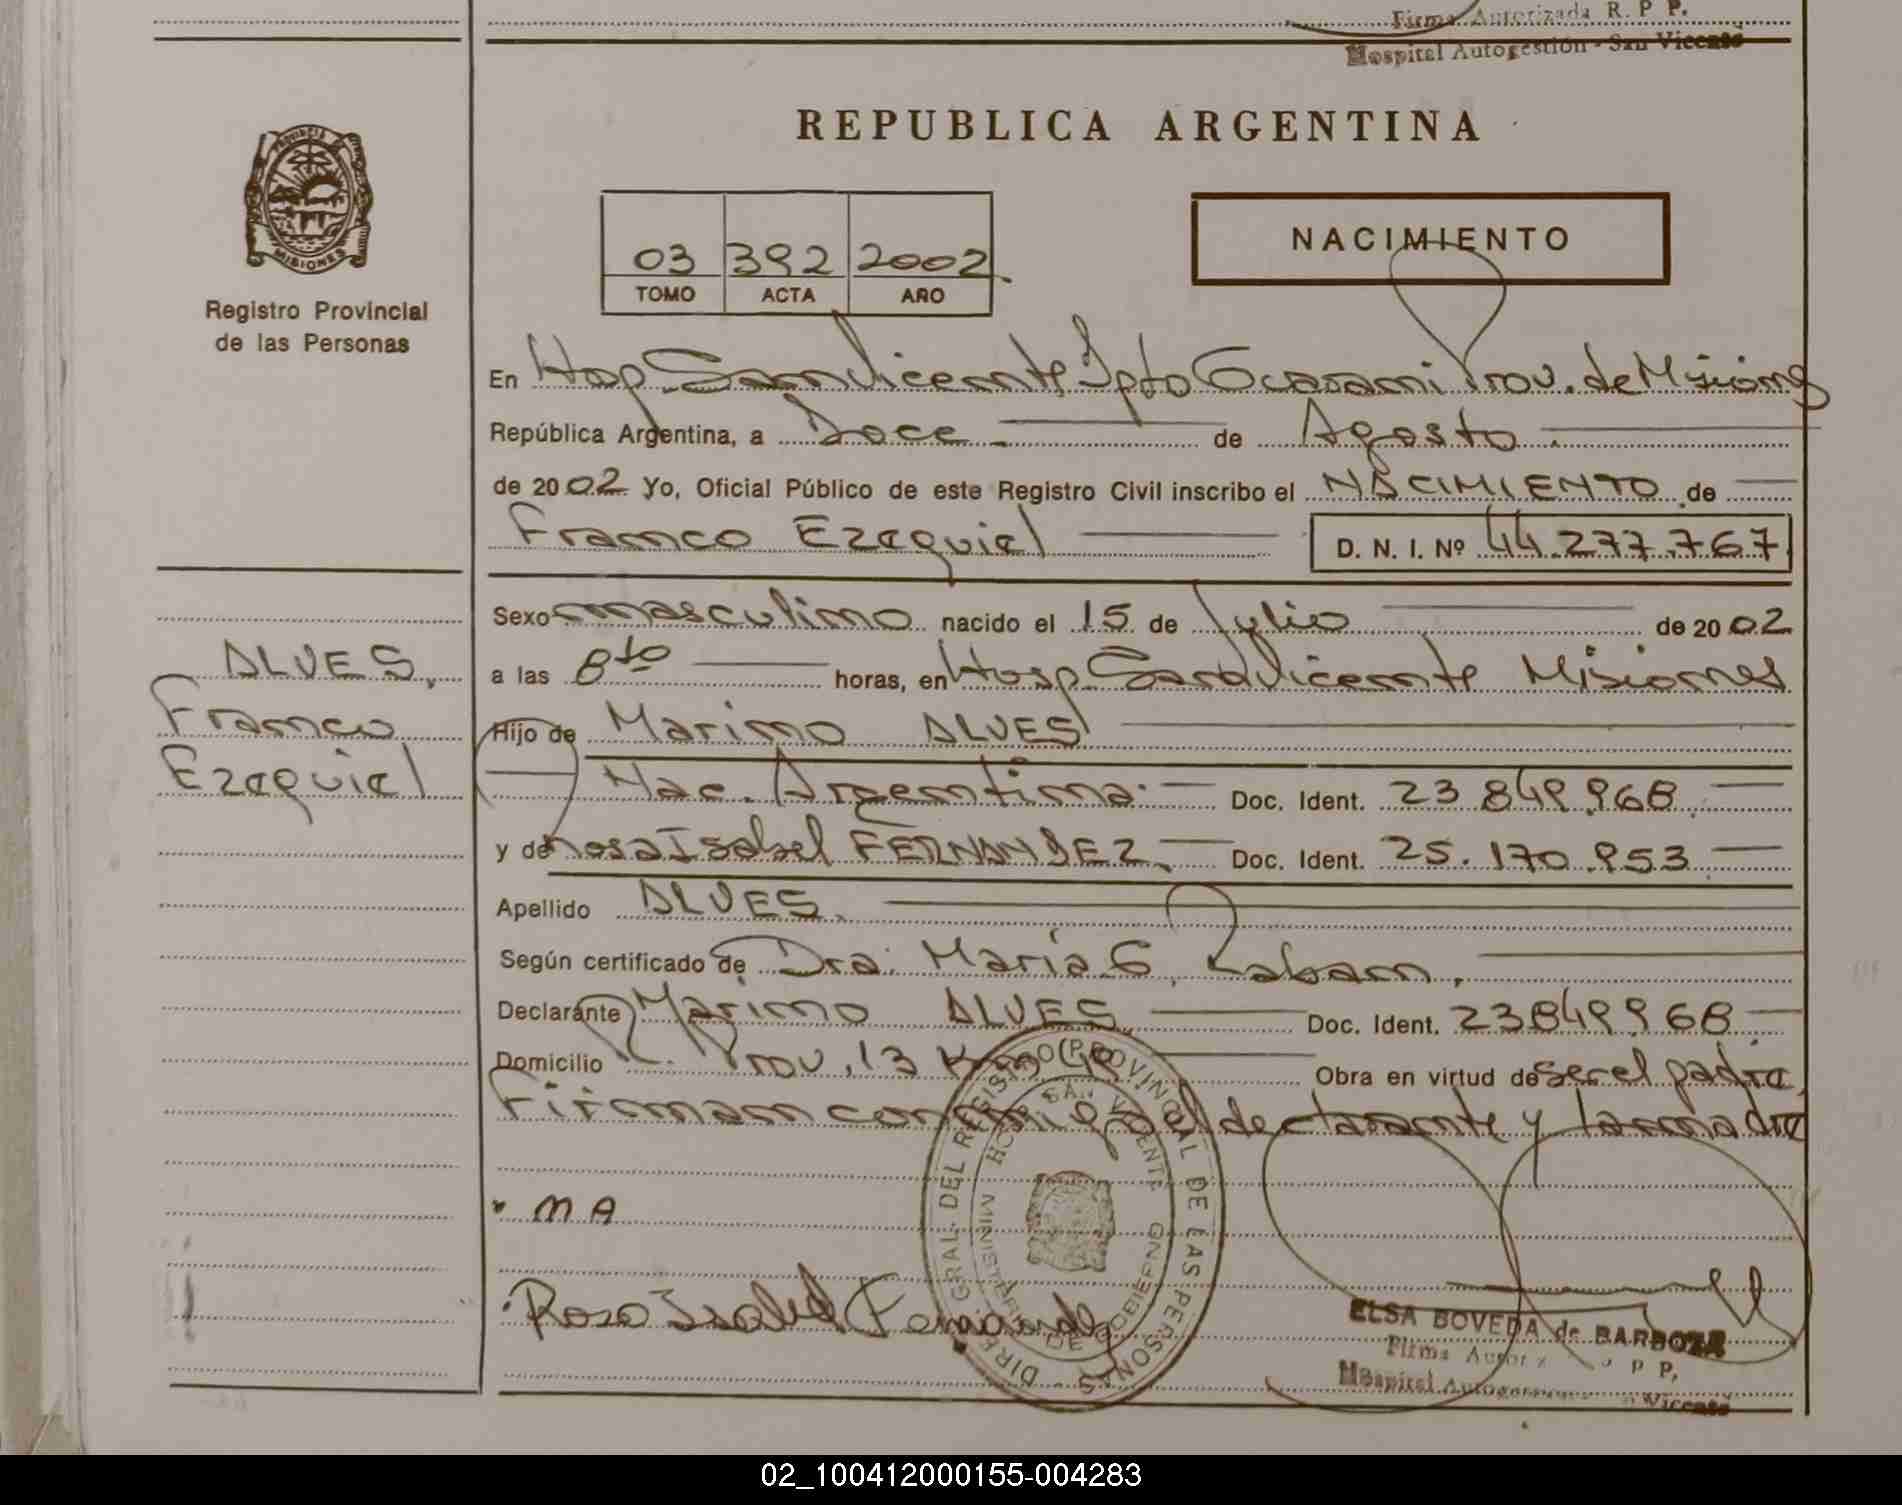 Firma Autorizada R. P P.
Hospital Autogestión - San Vicente
REPUBLICA ARGENTINA
PROVINCIA DE
MISIONES
Registro Provincial
de las Personas
03 392 2002
TOMO ACTA AÑO
NACIMIENTO
En Hosp. San Vicente Dpto Guarani Prov. de Misiones
República Argentina, a Doce de Agosto
de 2002 Yo, Oficial Público de este Registro Civil inscribo el NACIMIENTO de
Franco Ezequiel D. N. I. Nº 44.277.767
Sexo masculino nacido el 15 de Julio de 2002
a las 8 to horas, en Hosp San Vicente Misiones
Hijo de Marino ALVES
Nac. Argentina. Doc. Ident. 23 849.968
y de Rosa Isabel FERNANDEZ. Doc. Ident. 25.170.953
Apellido ALVES.
Según certificado de Dra. María G. Laban.
Declarante Marino ALVES. Doc. Ident. 23849968
Domicilio Prov. 13 Km Obra en virtud de ser el padre,
Firman conmigo el declarante y la madre
ALVES,
Franco
Ezequiel
M A
Rosa Isabel Fernandez
DIREC. GRAL. DEL REGISTRO PROVINCIAL DE LAS PERSONAS
HOSP. SAN VICENTE
MINISTERIO DE GOBIERNO
ELSA BOVEDA de BARBOZA
Firma Autoriz P P,
Hospital Autogestion Vicente
02_100412000155-004283